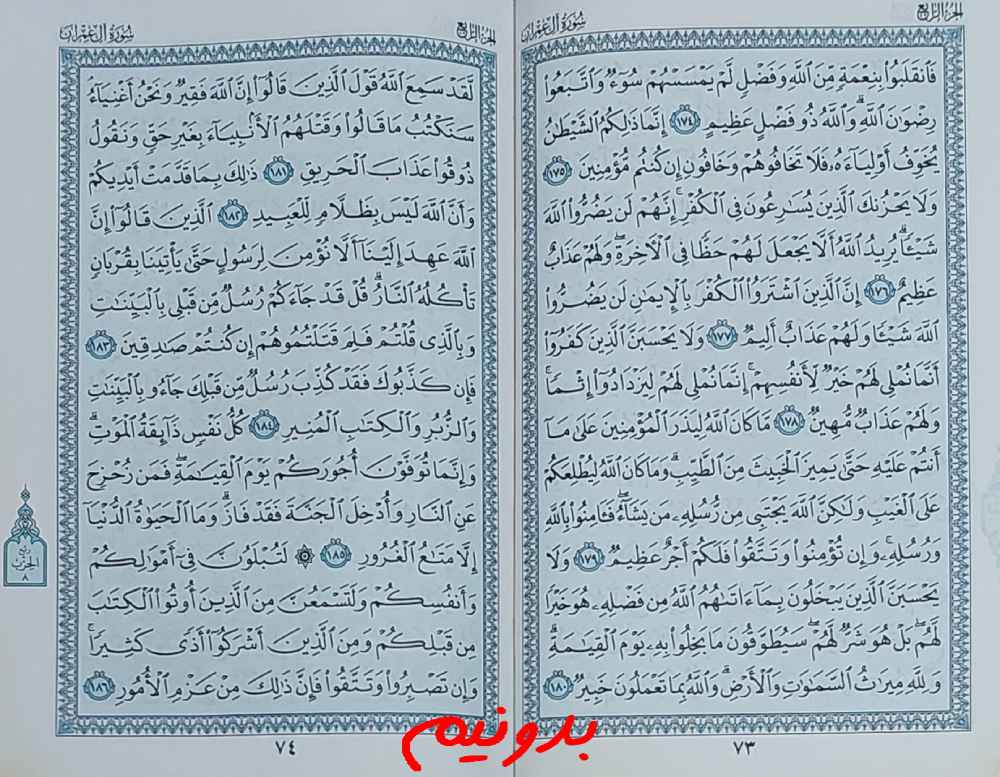 الجزء الرابع
سورة آل عمران
فَانقَلَبُوا۟ بِنِعْمَةٍ مِّنَ ٱللَّهِ وَفَضْلٍ لَّمْ يَمْسَسْهُمْ سُوٓءٌ وَٱتَّبَعُوا۟
رِضْوَٰنَ ٱللَّهِ ۗ وَٱللَّهُ ذُو فَضْلٍ عَظِيمٍ ١٧٤ إِنَّمَا ذَٰلِكُمُ ٱلشَّيْطَٰنُ
يُخَوِّفُ أَوْلِيَآءَهُۥ فَلَا تَخَافُوهُمْ وَخَافُونِ إِن كُنتُم مُّؤْمِنِينَ ١٧٥
وَلَا يَحْزُنكَ ٱلَّذِينَ يُسَٰرِعُونَ فِى ٱلْكُفْرِ ۚ إِنَّهُمْ لَن يَضُرُّوا۟ ٱللَّهَ
شَيْـًٔا ۗ يُرِيدُ ٱللَّهُ أَلَّا يَجْعَلَ لَهُمْ حَظًّا فِى ٱلْـَٔاخِرَةِ ۖ وَلَهُمْ عَذَابٌ
عَظِيمٌ ١٧٦ إِنَّ ٱلَّذِينَ ٱشْتَرَوُا۟ ٱلْكُفْرَ بِٱلْإِيمَٰنِ لَن يَضُرُّوا۟
ٱللَّهَ شَيْـًٔا وَلَهُمْ عَذَابٌ أَلِيمٌ ١٧٧ وَلَا يَحْسَبَنَّ ٱلَّذِينَ كَفَرُوٓا۟
أَنَّمَا نُمْلِى لَهُمْ خَيْرٌ لِّأَنفُسِهِمْ ۚ إِنَّمَا نُمْلِى لَهُمْ لِيَزْدَادُوٓا۟ إِثْمًا ۚ
وَلَهُمْ عَذَابٌ مُّهِينٌ ١٧٨ مَّا كَانَ ٱللَّهُ لِيَذَرَ ٱلْمُؤْمِنِينَ عَلَىٰ مَآ
أَنتُمْ عَلَيْهِ حَتَّىٰ يَمِيزَ ٱلْخَبِيثَ مِنَ ٱلطَّيِّبِ ۗ وَمَا كَانَ ٱللَّهُ لِيُطْلِعَكُمْ
عَلَى ٱلْغَيْبِ وَلَٰكِنَّ ٱللَّهَ يَجْتَبِى مِن رُّسُلِهِۦ مَن يَشَآءُ ۖ فَـَٔامِنُوا۟ بِٱللَّهِ
وَرُسُلِهِۦ ۚ وَإِن تُؤْمِنُوا۟ وَتَتَّقُوا۟ فَلَكُمْ أَجْرٌ عَظِيمٌ ١٧٩ وَلَا
يَحْسَبَنَّ ٱلَّذِينَ يَبْخَلُونَ بِمَآ ءَاتَىٰهُمُ ٱللَّهُ مِن فَضْلِهِۦ هُوَ خَيْرًا
لَّهُم ۖ بَلْ هُوَ شَرٌّ لَّهُمْ ۖ سَيُطَوَّقُونَ مَا بَخِلُوا۟ بِهِۦ يَوْمَ ٱلْقِيَٰمَةِ ۗ
وَلِلَّهِ مِيرَٰثُ ٱلسَّمَٰوَٰتِ وَٱلْأَرْضِ ۗ وَٱللَّهُ بِمَا تَعْمَلُونَ خَبِيرٌ ١٨٠
٧٣
الجزء الرابع
سورة آل عمران
لَّقَدْ سَمِعَ ٱللَّهُ قَوْلَ ٱلَّذِينَ قَالُوٓا۟ إِنَّ ٱللَّهَ فَقِيرٌ وَنَحْنُ أَغْنِيَآءُ ۘ
سَنَكْتُبُ مَا قَالُوا۟ وَقَتْلَهُمُ ٱلْأَنۢبِيَآءَ بِغَيْرِ حَقٍّ وَنَقُولُ
ذُوقُوا۟ عَذَابَ ٱلْحَرِيقِ ١٨١ ذَٰلِكَ بِمَا قَدَّمَتْ أَيْدِيكُمْ
وَأَنَّ ٱللَّهَ لَيْسَ بِظَلَّامٍ لِّلْعَبِيدِ ١٨٢ ٱلَّذِينَ قَالُوٓا۟ إِنَّ
ٱللَّهَ عَهِدَ إِلَيْنَآ أَلَّا نُؤْمِنَ لِرَسُولٍ حَتَّىٰ يَأْتِيَنَا بِقُرْبَانٍ
تَأْكُلُهُ ٱلنَّارُ ۗ قُلْ قَدْ جَآءَكُمْ رُسُلٌ مِّن قَبْلِى بِٱلْبَيِّنَٰتِ
وَبِٱلَّذِى قُلْتُمْ فَلِمَ قَتَلْتُمُوهُمْ إِن كُنتُمْ صَٰدِقِينَ ١٨٣
فَإِن كَذَّبُوكَ فَقَدْ كُذِّبَ رُسُلٌ مِّن قَبْلِكَ جَآءُو بِٱلْبَيِّنَٰتِ
وَٱلزُّبُرِ وَٱلْكِتَٰبِ ٱلْمُنِيرِ ١٨٤ كُلُّ نَفْسٍ ذَآئِقَةُ ٱلْمَوْتِ ۗ
وَإِنَّمَا تُوَفَّوْنَ أُجُورَكُمْ يَوْمَ ٱلْقِيَٰمَةِ ۖ فَمَن زُحْزِحَ
عَنِ ٱلنَّارِ وَأُدْخِلَ ٱلْجَنَّةَ فَقَدْ فَازَ ۗ وَمَا ٱلْحَيَوٰةُ ٱلدُّنْيَآ
إِلَّا مَتَٰعُ ٱلْغُرُورِ ١٨٥ ۞ لَتُبْلَوُنَّ فِىٓ أَمْوَٰلِكُمْ
وَأَنفُسِكُمْ وَلَتَسْمَعُنَّ مِنَ ٱلَّذِينَ أُوتُوا۟ ٱلْكِتَٰبَ
مِن قَبْلِكُمْ وَمِنَ ٱلَّذِينَ أَشْرَكُوٓا۟ أَذًى كَثِيرًا ۚ
وَإِن تَصْبِرُوا۟ وَتَتَّقُوا۟ فَإِنَّ ذَٰلِكَ مِنْ عَزْمِ ٱلْأُمُورِ ١٨٦
ربع
الحزب
٨
٧٤
بدونیم